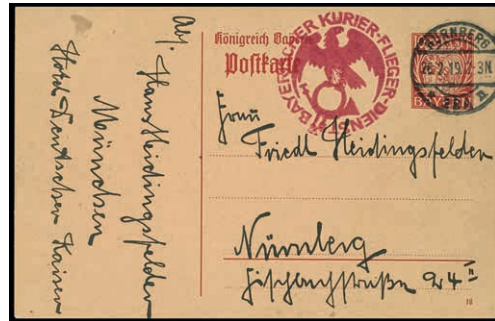 Abs.
Hans Heidingsfelder
München
Hotel Deutscher Kaiser
Königreich Bayern
Postkarte
BAYERISCHER KURIER-FLIEGER-DIENST
NÜRNBERG
Frau
Friedl Heidingsfelder
Nürnberg
Fischbachstraße 24 II